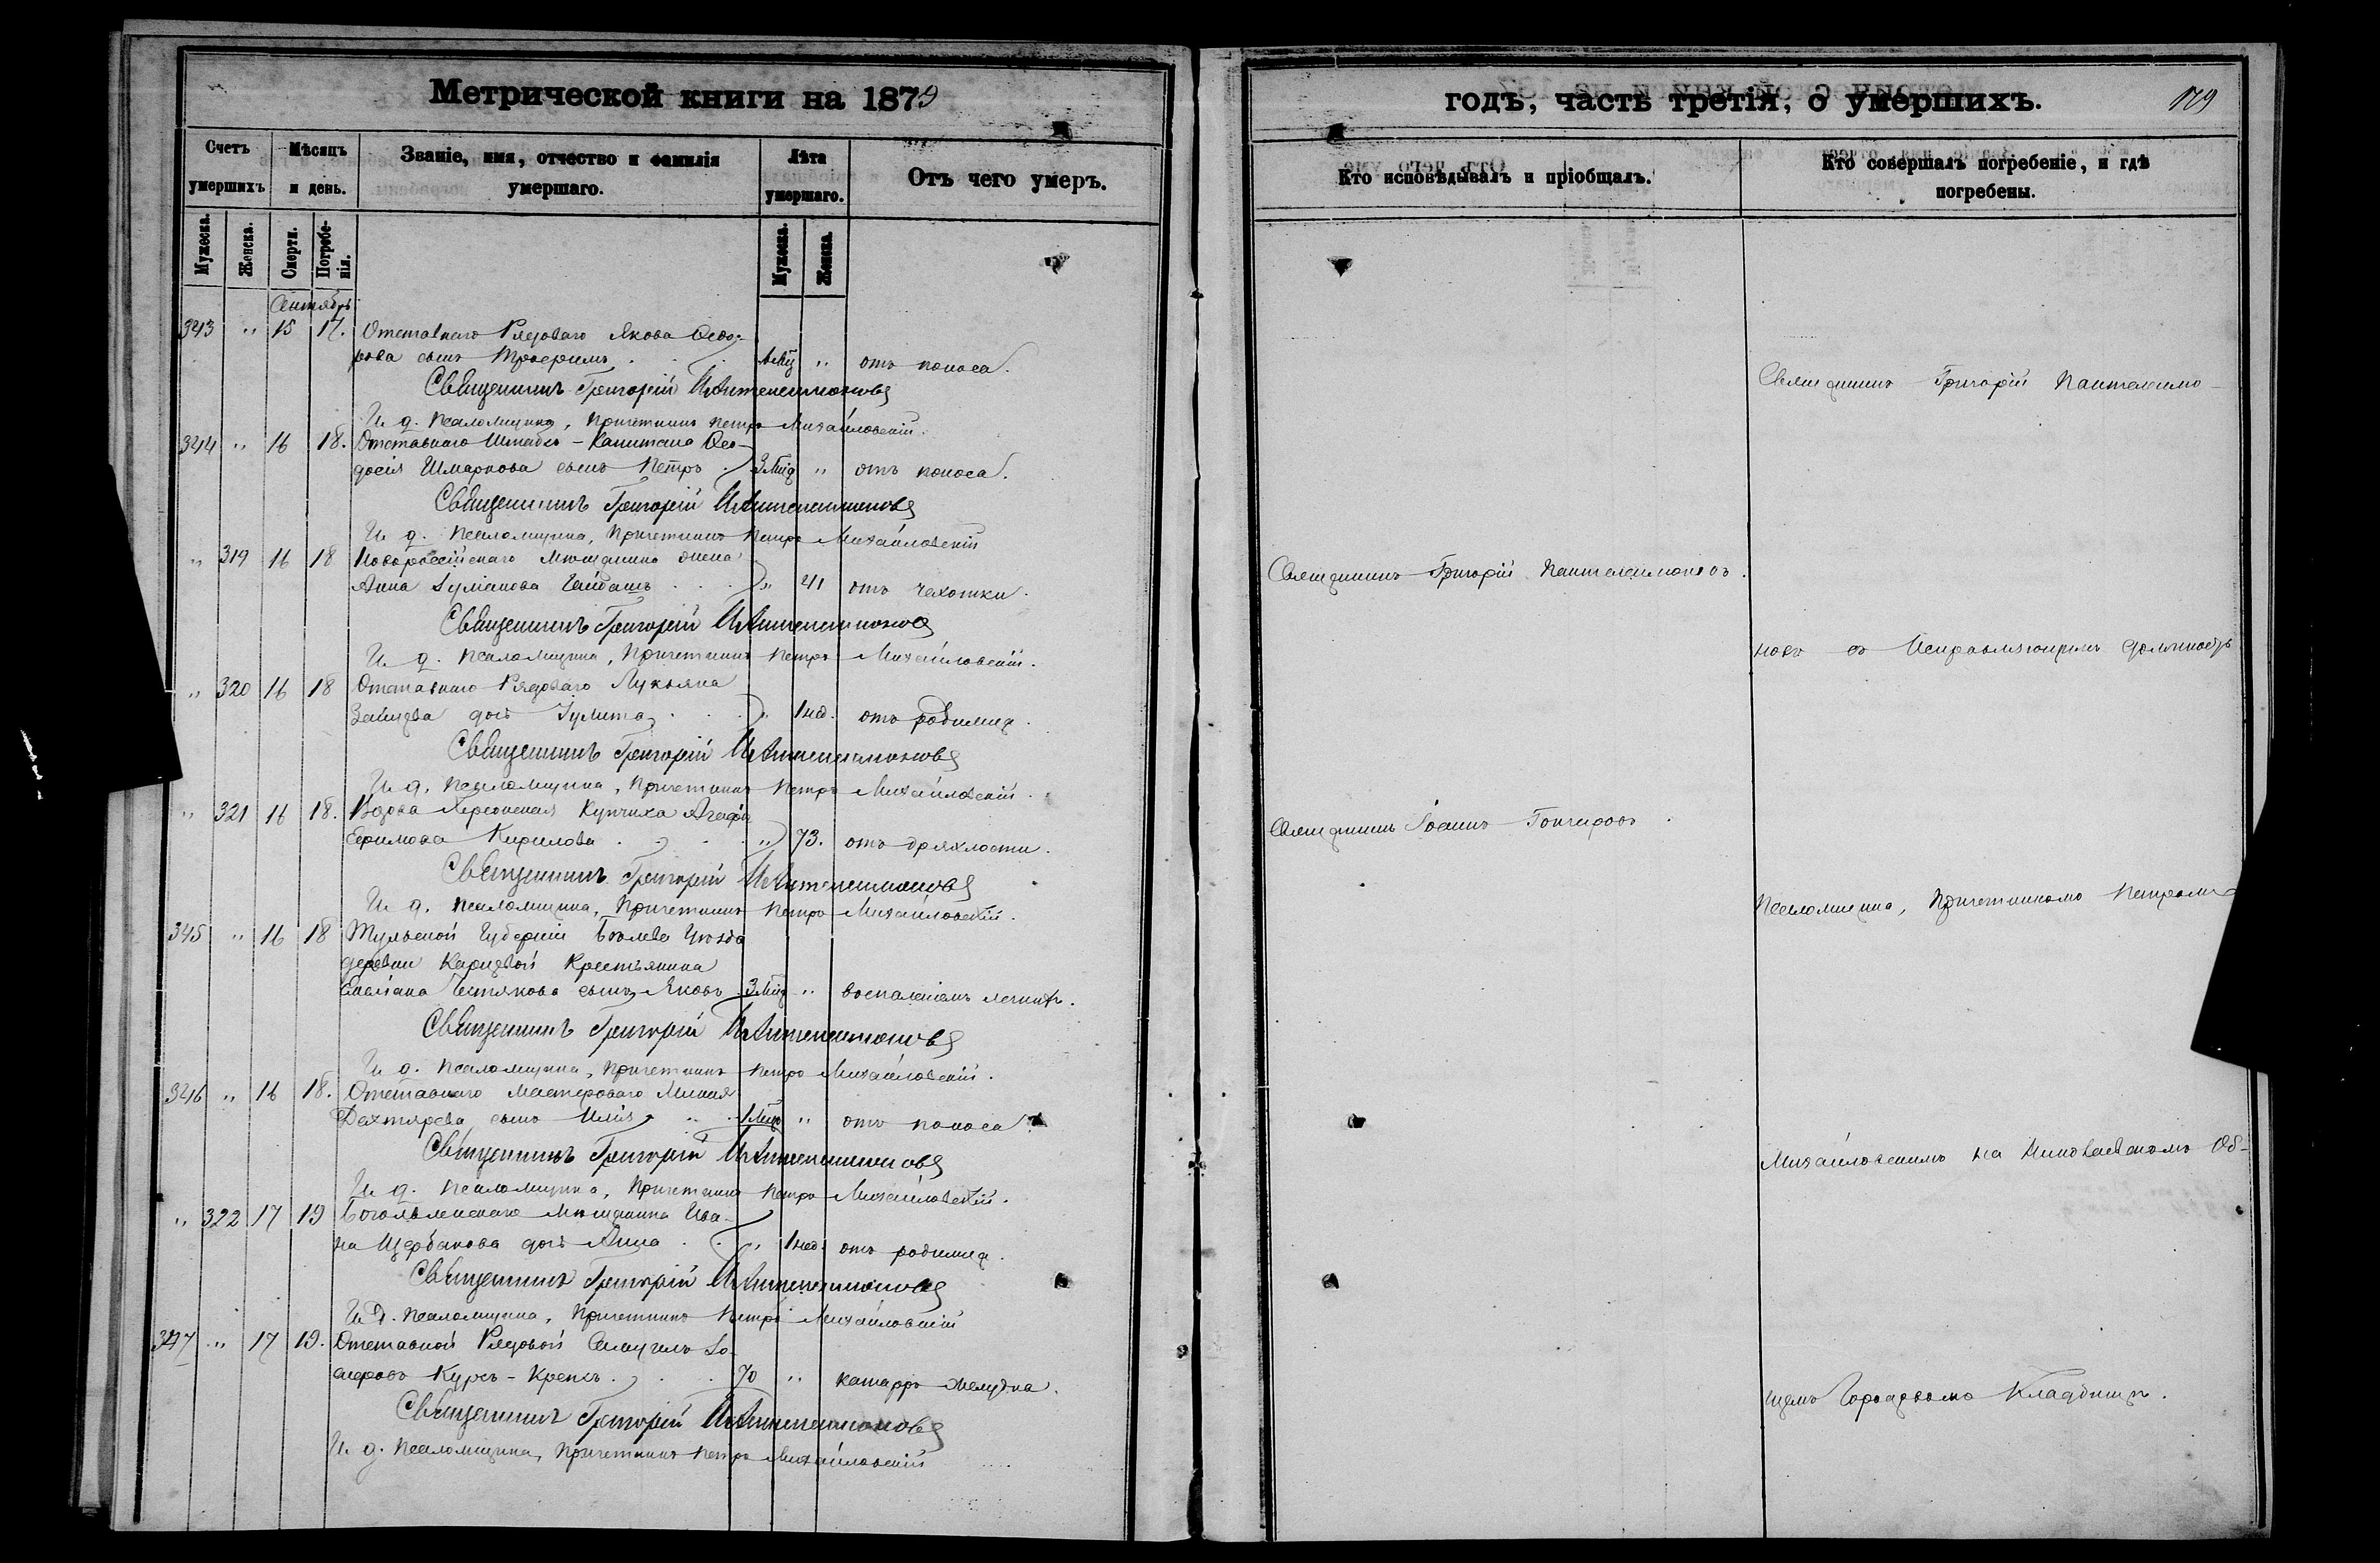 Метрической книги на 1879
Счетъ умершихъ
Мѣсяцъ и день.
Званіе, имя, отчество и фамилія умершаго.
Лѣта умершаго.
Отъ чего умеръ.
Мужеска.
Женска.
Смерти.
Погребенія.
Мужеска.
Женска.
Сентябрь
343 " 15 17. Отставнаго Рядоваго Якова Ѳедо-
рова сынъ Трофимъ " отъ поноса.
Священникъ Григорій Пантелеимоновъ
И. д. Псаломщика, Причетникъ Петръ Михайловскій.
344 " 16 18. Отставнаго Штабсъ-Капитана Ѳео-
досія Шмаркова сынъ Петръ 3 Мѣс " отъ поноса.
Священникъ Григорій Пантелеимоновъ
И. д. Псаломщика, Причетникъ Петръ Михайловскій
" 319 16 18 Новороссійскаго Мѣщанина жена
Анна " 41 отъ чахотки.
Священникъ Григорій Пантелеимоновъ
И. д. Псаломщика, Причетникъ Петръ Михайловскій.
" 320 16 18 Отставнаго Рядоваго Лукьяна
Зайцева дочь Іулита " 1 нед. отъ родимца.
Священникъ Григорій Пантелеимоновъ
И. д. Псаломщика, Причетникъ Петръ Михайловскій.
" 321 16 18. Вдова Херсонская Купчиха Агафія
Ефимова Кирилова " 73. отъ дряхлости.
Священникъ Григорій Пантелеимоновъ
И. д. Псаломщика, Причетникъ Петръ Михайловскій.
345 " 16 18 Тульской Губерніи Бѣлева Уѣзда
деревни Карцевой Крестьянина
сынъ Яковъ 3 Мѣс " воспаленіемъ легкихъ.
Священникъ Григорій Пантелеимоновъ
И. д. Псаломщика, Причетникъ Петръ Михайловскій.
346 " 16 18. Отставнаго Мастероваго
Дехтярева сынъ Илія 1 Мѣс " отъ поноса
Священникъ Григорій Пантелеимоновъ
И. д. Псаломщика, Причетникъ Петръ Михайловскій.
" 322 17 19 Мѣщанина Ива-
на Щербакова дочь Анна " 1 нед. отъ родимца.
Священникъ Григорій Пантелеимоновъ
И. д. Псаломщика, Причетникъ Петръ Михайловскій
347 " 17 19. Отставной Рядовой Самуилъ
Куръ-Крепсъ. 70 " катарръ желудка.
Священникъ Григорій Пантелеимоновъ
И. д. Псаломщика, Причетникъ Петръ Михайловскій
годъ, часть третія, о умершихъ.
179
Кто исповѣдывалъ и пріобщалъ.
Кто совершалъ погребеніе, и гдѣ погребены.
Священникъ Григорій Пантелеимо-
Священникъ Григорій Пантелеимоновъ.
новъ съ Исправляющимъ должность
Священникъ Іоаннъ Гончаровъ.
Псаломщика, Причетникомъ Петромъ
Михайловскимъ на Николаевскомъ Об-
щемъ Городскомъ Кладбищѣ.